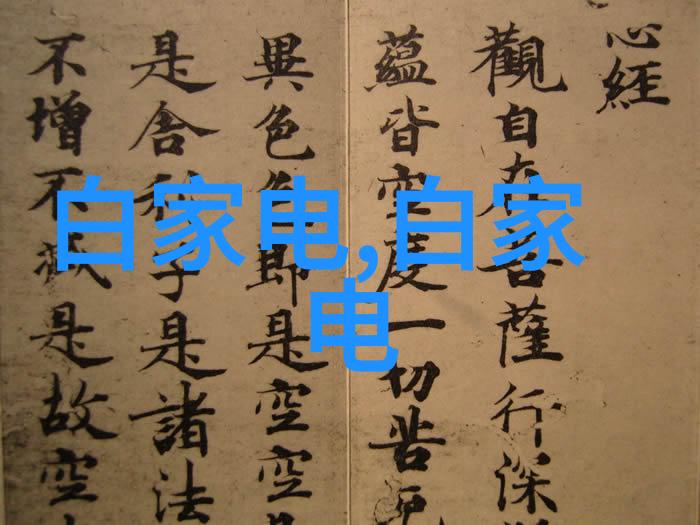 心經
觀自在菩薩行深
蘊皆空度一切苦厄
異色色即是空空
是舍利子是諸法
不增不減是故空
白家电,自家
电